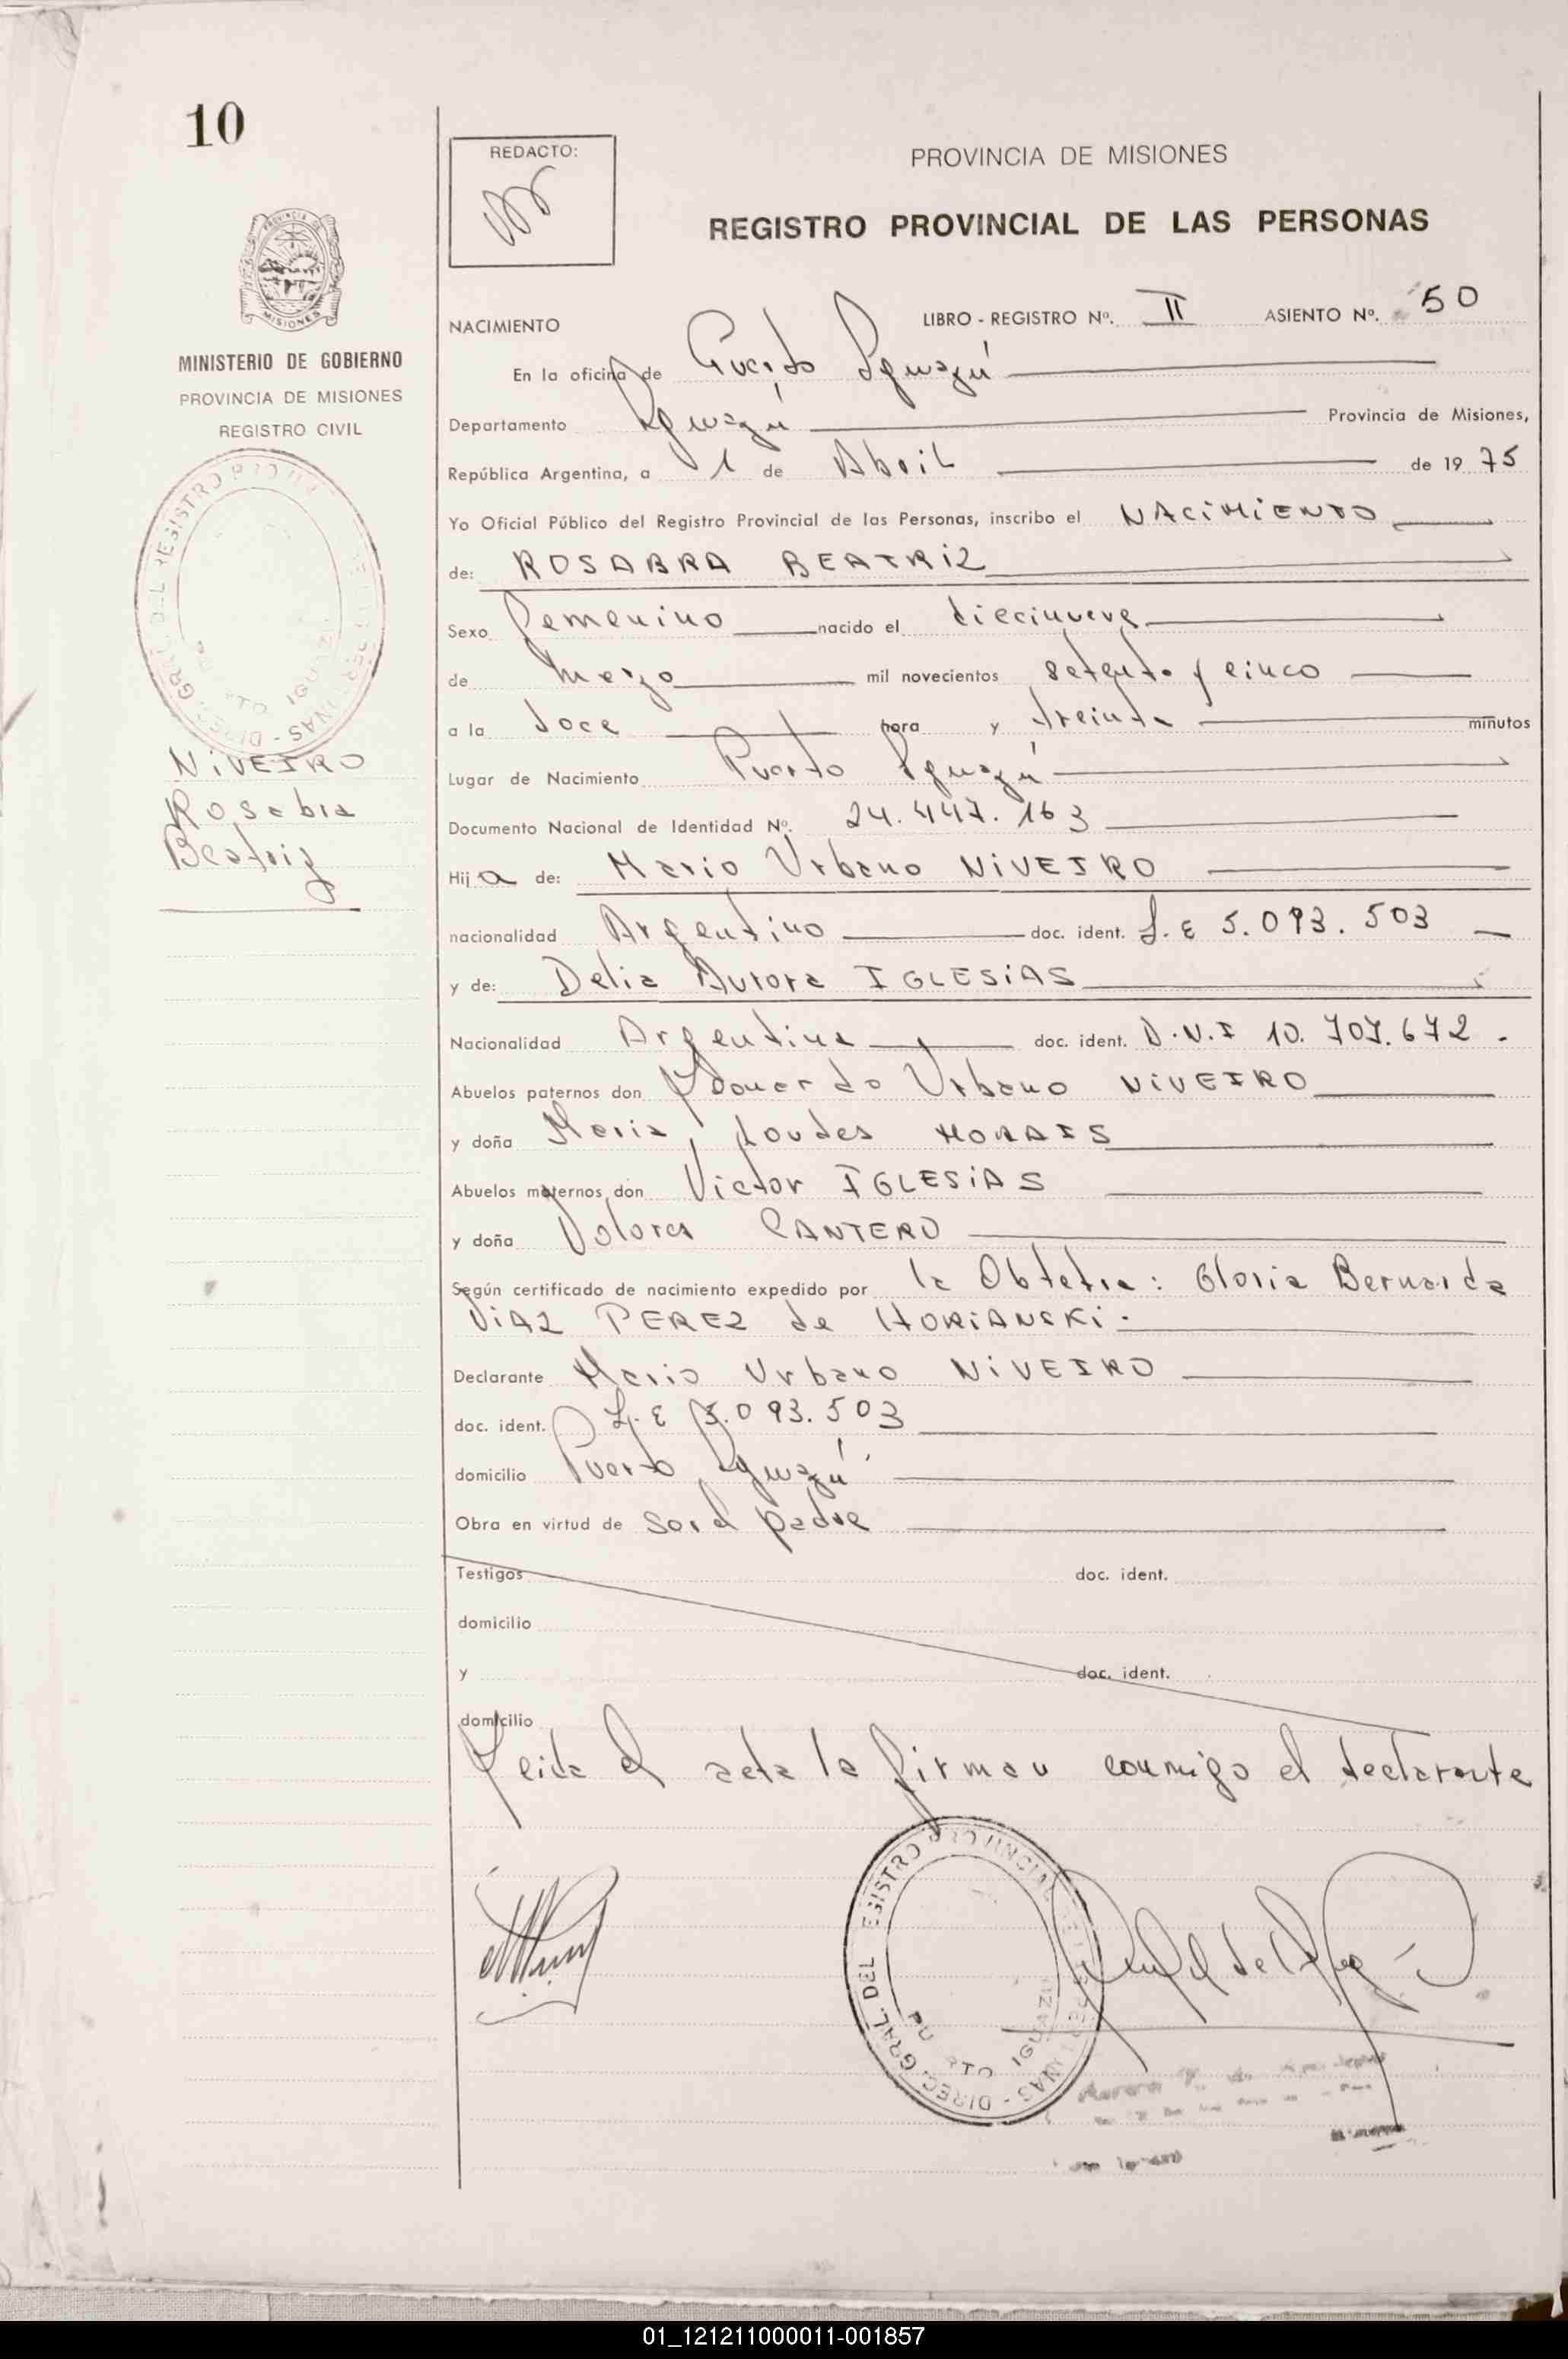 10
REDACTO:
PROVINCIA DE MISIONES
REGISTRO PROVINCIAL DE LAS PERSONAS
PROVINCIA DE
MISIONES
MINISTERIO DE GOBIERNO
PROVINCIA DE MISIONES
REGISTRO CIVIL
NiVEIRO
Rosabra
Beatriz
NACIMIENTO LIBRO - REGISTRO Nº. II ASIENTO Nº. 50
En la oficina de Puerto Iguazú
Departamento Iguazú Provincia de Misiones,
República Argentina, a 1 de Abril de 1975
Yo Oficial Público del Registro Provincial de las Personas, inscribo el NACiMiENTO
de: ROSABRA BEATRiZ
Sexo Femenino nacido el diecinueve
de Marzo mil novecientos setenta y cinco
a la doce hora y treinta minutos
Lugar de Nacimiento Puerto Iguazú
Documento Nacional de Identidad Nº. 24.447.163
Hija de: Mario Urbano NiVEIRO
nacionalidad Argentino doc. ident. L.E 5.093.503
y de: Delia Aurora IGLESiAS
Nacionalidad Argentina doc. ident. D.N.I 10.707.672.
Abuelos paternos don Edouardo Urbano NiVEIRO
y doña Maria Loudes MORAIS
Abuelos maternos don Victor IGLESiAS
y doña Dolores CANTERO
Según certificado de nacimiento expedido por la Obtetra: Gloria Bernarda
DiAZ PEREZ de HORiANSKi.
Declarante Mario Urbano NiVEIRO
doc. ident. L.E 5.093.503
domicilio Puerto Iguazú
Obra en virtud de Ser el padre
Testigos doc. ident.
domicilio
y doc. ident.
domicilio
Leida el acta la firman conmigo el declarante
DIREC. GRAL. DEL REGISTRO PROVINCIAL
PTO IGUAZU
01_121211000011-001857